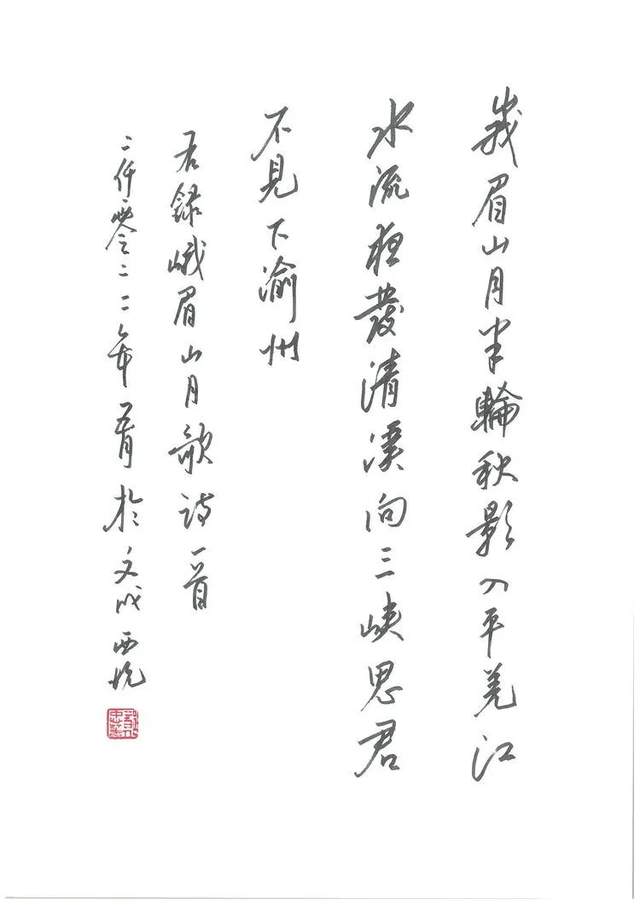 峩眉山月半輪秋影入平羌江
水流夜發清溪向三峽思君
不見下渝州
右録峨眉山月歌诗一首
二仟零二二年五月於文成西坑